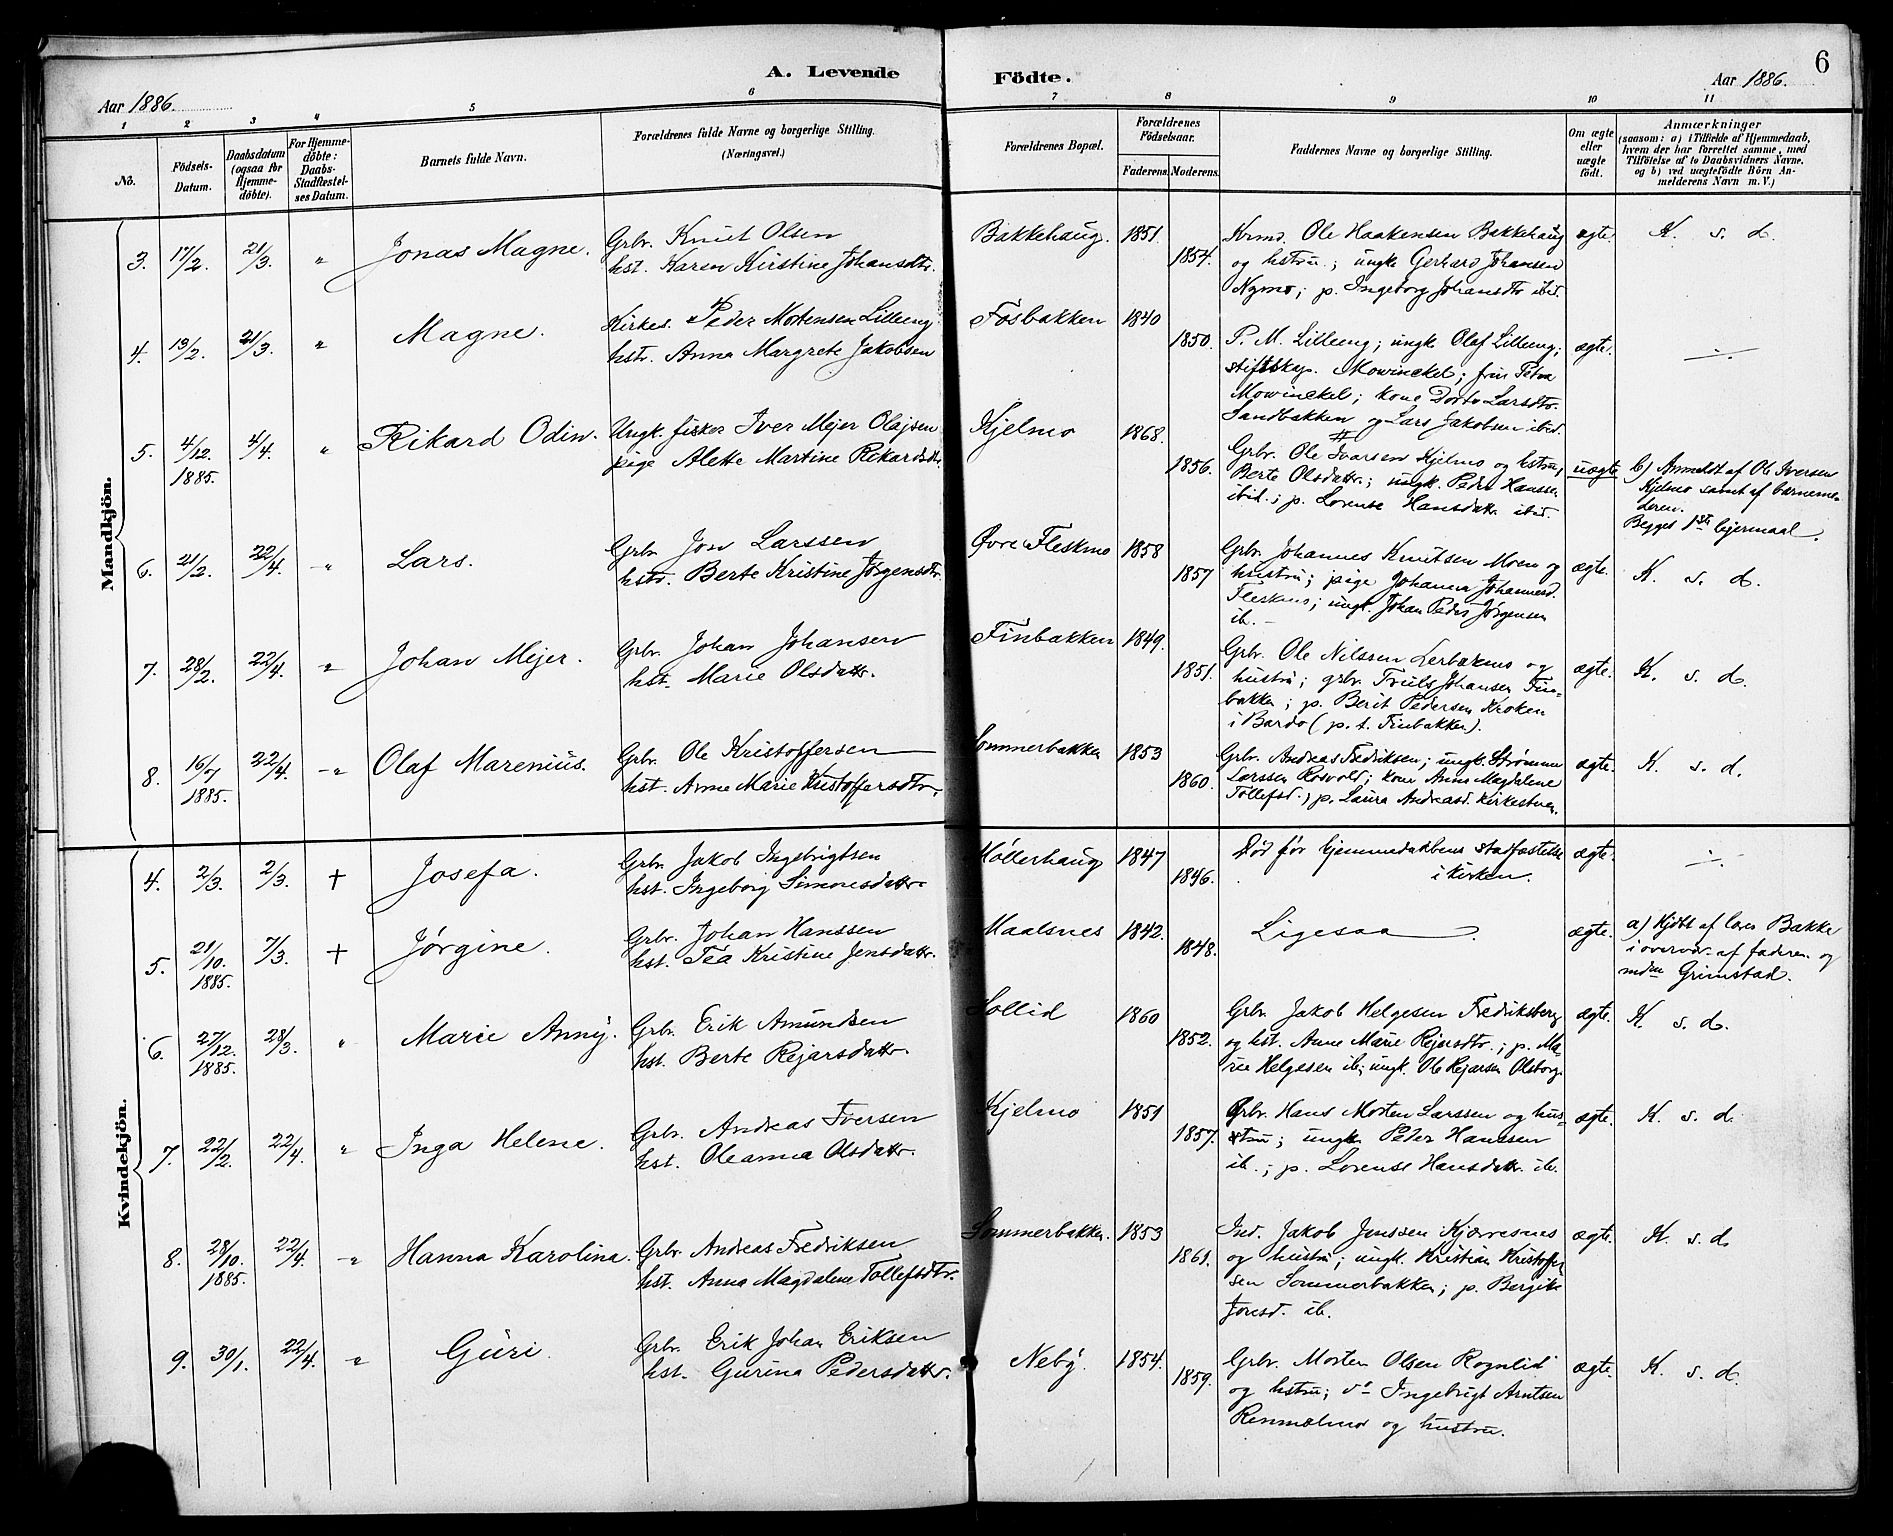 6
A. Levende Födte.
Aar 1886. Aar 1886.
1 2 3 4 5 6 7 8 9 10 11
No.
Födsels-
Datum.
Daabsdatum
(ogsaa for
Hjemme-
döbte).
For Hjemme-
döbte:
Daabs-
Stadfæstel-
ses Datum.
Barnets fulde Navn.
Forældrenes fulde Navne og borgerlige Stilling.
(Næringsvei.)
Forældrenes Bopæl.
Forældrenes
Födselsaar.
Faderens. Moderens.
Faddernes Navne og borgerlige Stilling.
Om ægte
eller
uægte
födt.
Anmærkninger
(saasom: a) i Tilfælde af Hjemmedaab,
hvem der har forrettet samme, med
Tilföielse af to Daabsvidners Navne.
og b) ved uægtefödte Börn An-
melderens Navn m. V.)
Mandkjön.
3. 17/2. 21/3. " Jonas Magne.
Grb. Knut Olsen
hst. Karen Kirstine Johansdtr.
Bakkehaug. 1851. 1854.
Krmd. Ole Haakensen Bakkehaug
og hstru.; ungk Gerhard Johansen
Nymo; p. Ingeborg Johansdtr ibid.
ægte. K. s. d.
4. 13/2. 21/3. " Magne.
Kirkes. Peder Mortensen Lilleeng
hstr. Anna Margrete Jakobsen
Fosbakken 1840 1850.
P. M. Lilleeng; ungk Olaf Lilleeng;
stiftskap. Mowinckel; fru Petra
Mowinckel; kone Dorte Larsdtr.
Sandbakken og Lars Jakobsen ibid.
ægte. ÷
5. 4/12. 1885. 4/4. " Rikard Odin.
Ungk. fisker Iver Mejer Olajsen
pige Alette Martine Rikardsdtr.
Kjelmo 1868. 1856.
Grb. Ole Ivarsen Kjelmo og hstru,
Berte Olsdattr.; ungk. Peder Hanssen
ibid.; p. Lorense Hansdattr ibid.
uægte b) Anmeldt af Ole Iversen
Kjelmo samt af barneme-
deren.
Begges 1ste lejermaal.
6. 21/2. 22/4. " Lars.
Grb. Jon Larssen
hstr. Berte Kristine Jørgensdtr.
Øvre Fleskmo 1858 1857
Grb. Johannes Knutsen Moen og
hustru; pige Johanna Johannesd.
Fleskmo; ungk. Johan Peder Jørgensen
ib.
ægte. K. s. d.
7. 28/2. 22/4. " Johan Mejer.
Grb. Johan Johansen
hst. Marie Olsdattr.
Finbakken 1849. 1851.
Grb. Ole Nilssen Lerbækmo og
hustru; grb. Truls Johansen Fin-
bakken; p. Berit Pedersen Kroken
i Bardo (p. t. Finbakken).
ægte. K. s. d.
8. 16/7 1885. 22/4. " Olaf Marenius.
Grb. Ole Kristoffersen
hst. Anne Marie Kristoffersdtr.
Sommerbakken 1853 1860.
Grb. Andreas Fredriksen; ungk. Strømme
Larssen Rosvold; kone Anne Magdalene
Tollefsd.; p. Laura Andreasd. Kirkestuen.
ægte. K. s. d.
Kvindekjön.
4. 2/3. 2/3. † Josefa.
Grb. Jakob Ingebrigtsen
hst. Ingeborg Simonsdattr.
Møllerhaug 1847 1846.
Død før hjemmedaabens stadfæstelse
i kirken.
ægte. ÷
5. 21/10. 1885. 7/3. † Jørgine.
Grb. Johan Hanssen
hst. Tea Kristine Jensdattr.
Maalsnes 1842. 1848.
Ligesaa.
ægte. a) Hjdbt af lærer Bakke
i overvær. af faderen og
Grimstad.
6. 27/12. 1885. 28/3. " Marie Anny.
Grb. Erik Amundsen
hst. Berte Rejarsdattr.
Sollid 1860 1852.
Grb. Jakob Helgesen Fredriksberg
og hst. Anne Marie Rejarsdtr.; p. Ma-
rie Helgesen ib; ungk. Ole Rejarsen Olsborg.
ægte. K. s. d.
7. 22/2. 22/4. " Inga Helene.
Grb. Andreas Iversen
hst. Oleanna Olsdattr.
Kjelmo 1851 1857.
Grb. Hans Morten Larssen og hus-
tru; ungk Peder Hanssen
ib.; p. Lorense Hansdattr. ib.
ægte. K. s. d.
8. 28/10. 1885. 22/4. " Hanna Karolina.
Grb. Andreas Fredriksen
hst. Anna Magdalene Tollefsdtr.
Sommerbakken. 1853 1861.
Ind. Jakob Jenssen Kjærvesnes
og hustru; ungk. Kristian Kristoffer-
sen Sommerbakken; p. Bergitte
Joresd. ib.
ægte. K. s. d.
9. 30/1. 22/4. " Guri.
Grb. Erik Johan Eriksen
hst. Gurina Pedersdattr.
Neby. 1854. 1859.
Grb. Morten Olsen Rognlid
og hstru; do Ingebrigt Arntsen
Renmælmo og hustru.
ægte. K. s. d.